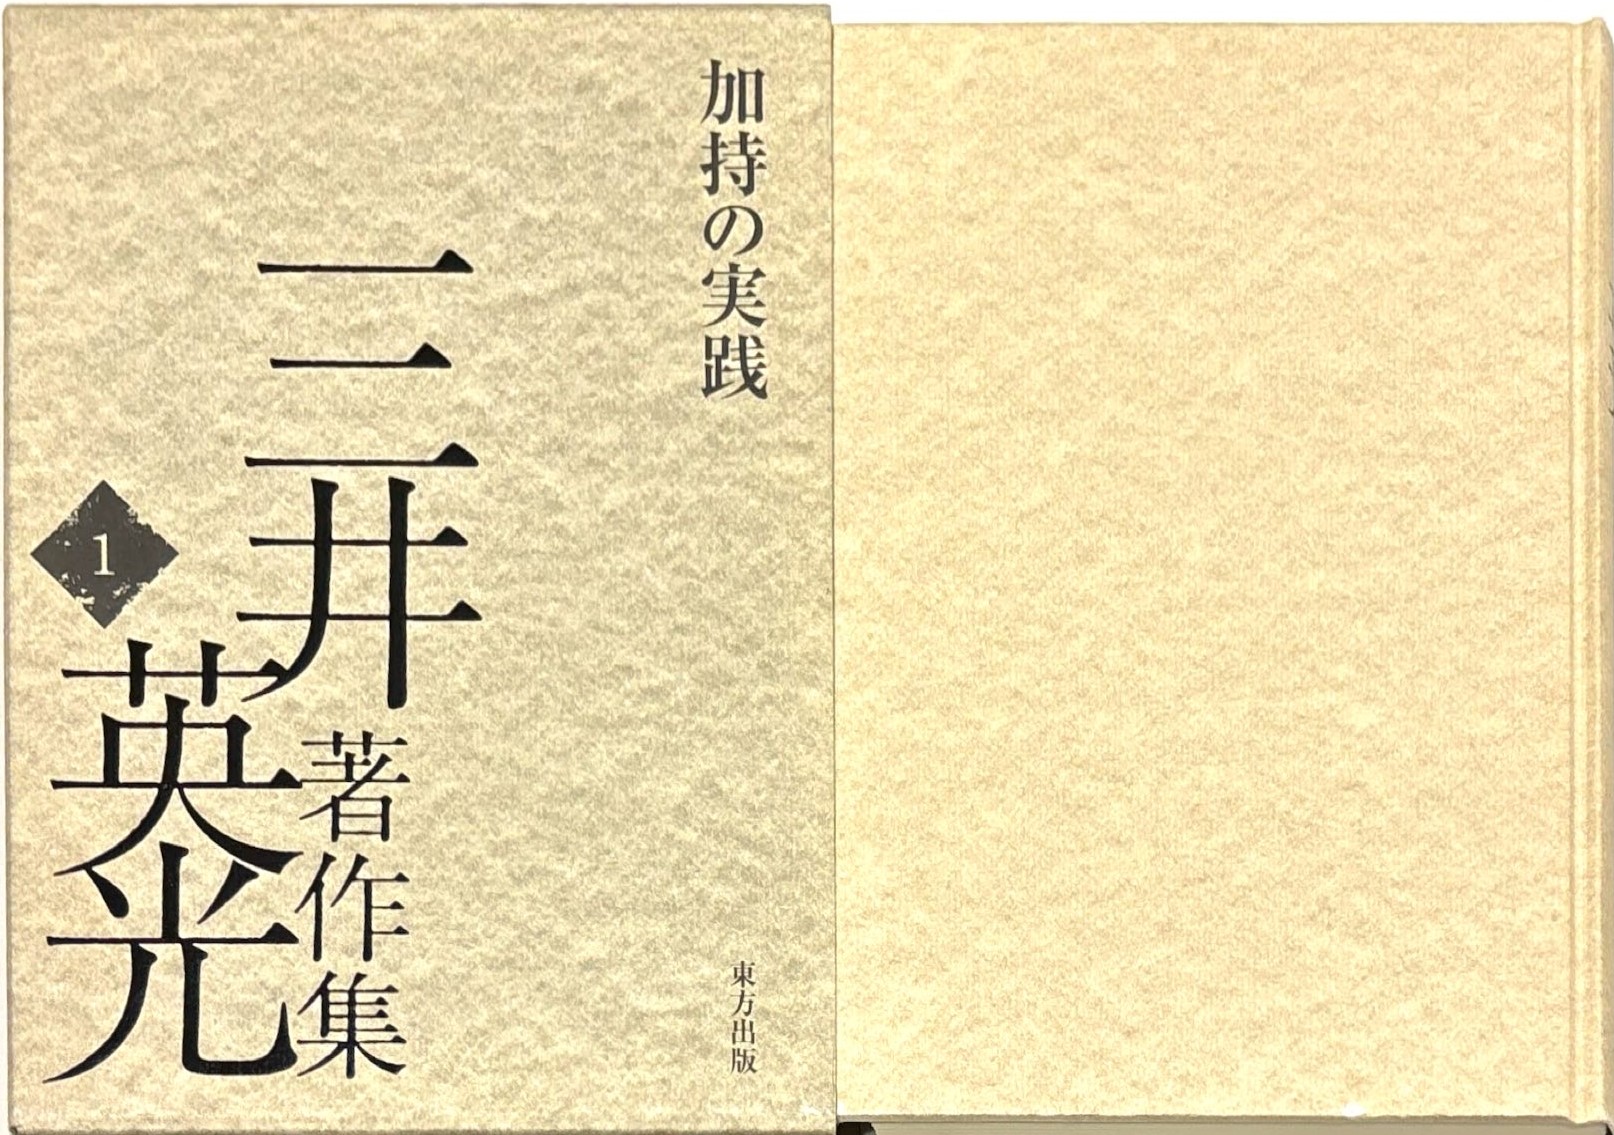 加持の実践
三井
英光
著作集
1
東方出版